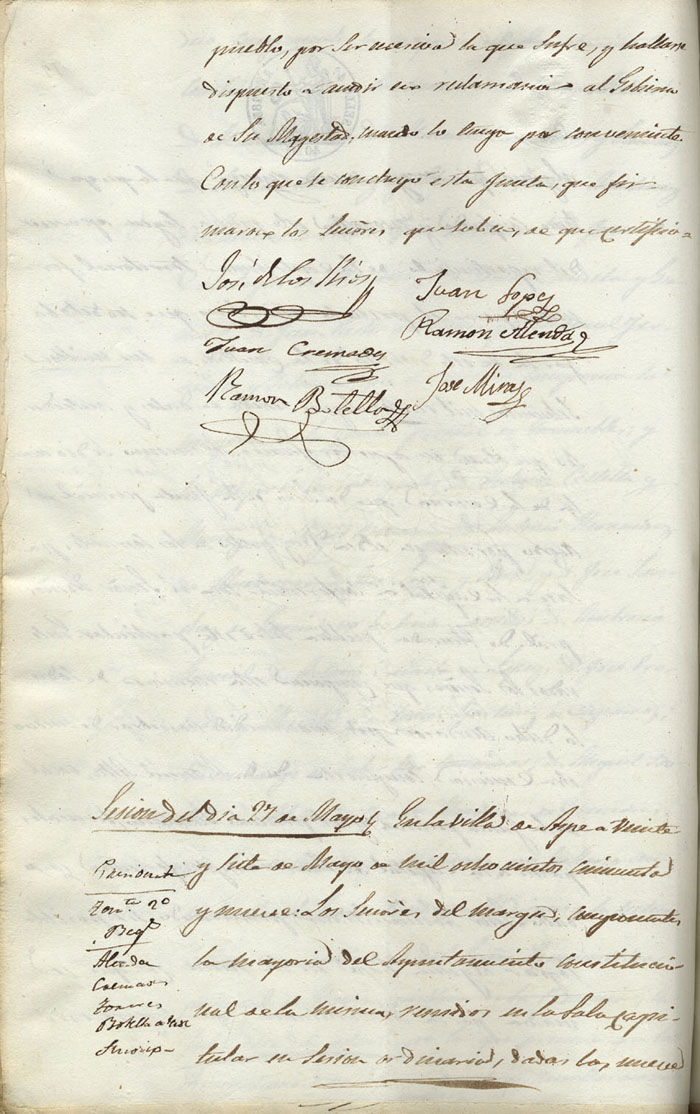 pueblo, por ser escesiva la que sufre, y hallarse
dispuesto a acudir en reclamacion al Gobierno
de Su Magestad, cuando lo tenga por conveniente.
Con lo que se concluyó esta Junta, que fir-
maron los Señores que saben, de que certifico=
José de los Rios
Juan Lopez
Juan Cremades
Ramon Alenda
Ramon Botella
Jose Miras
Sesion del dia 27 de Mayo
En la villa de Aspe a veinte
y siete de Mayo de mil ochocientos cincuenta
y nueve: Los Señores del margen, componentes
la mayoria del Ayuntamiento constitucio-
nal de la misma, reunidos en la Sala capi-
tular en sesion ordinaria, dadas las nueve
Presidente
Ten.te 2º
Alenda
Cremades
Botella